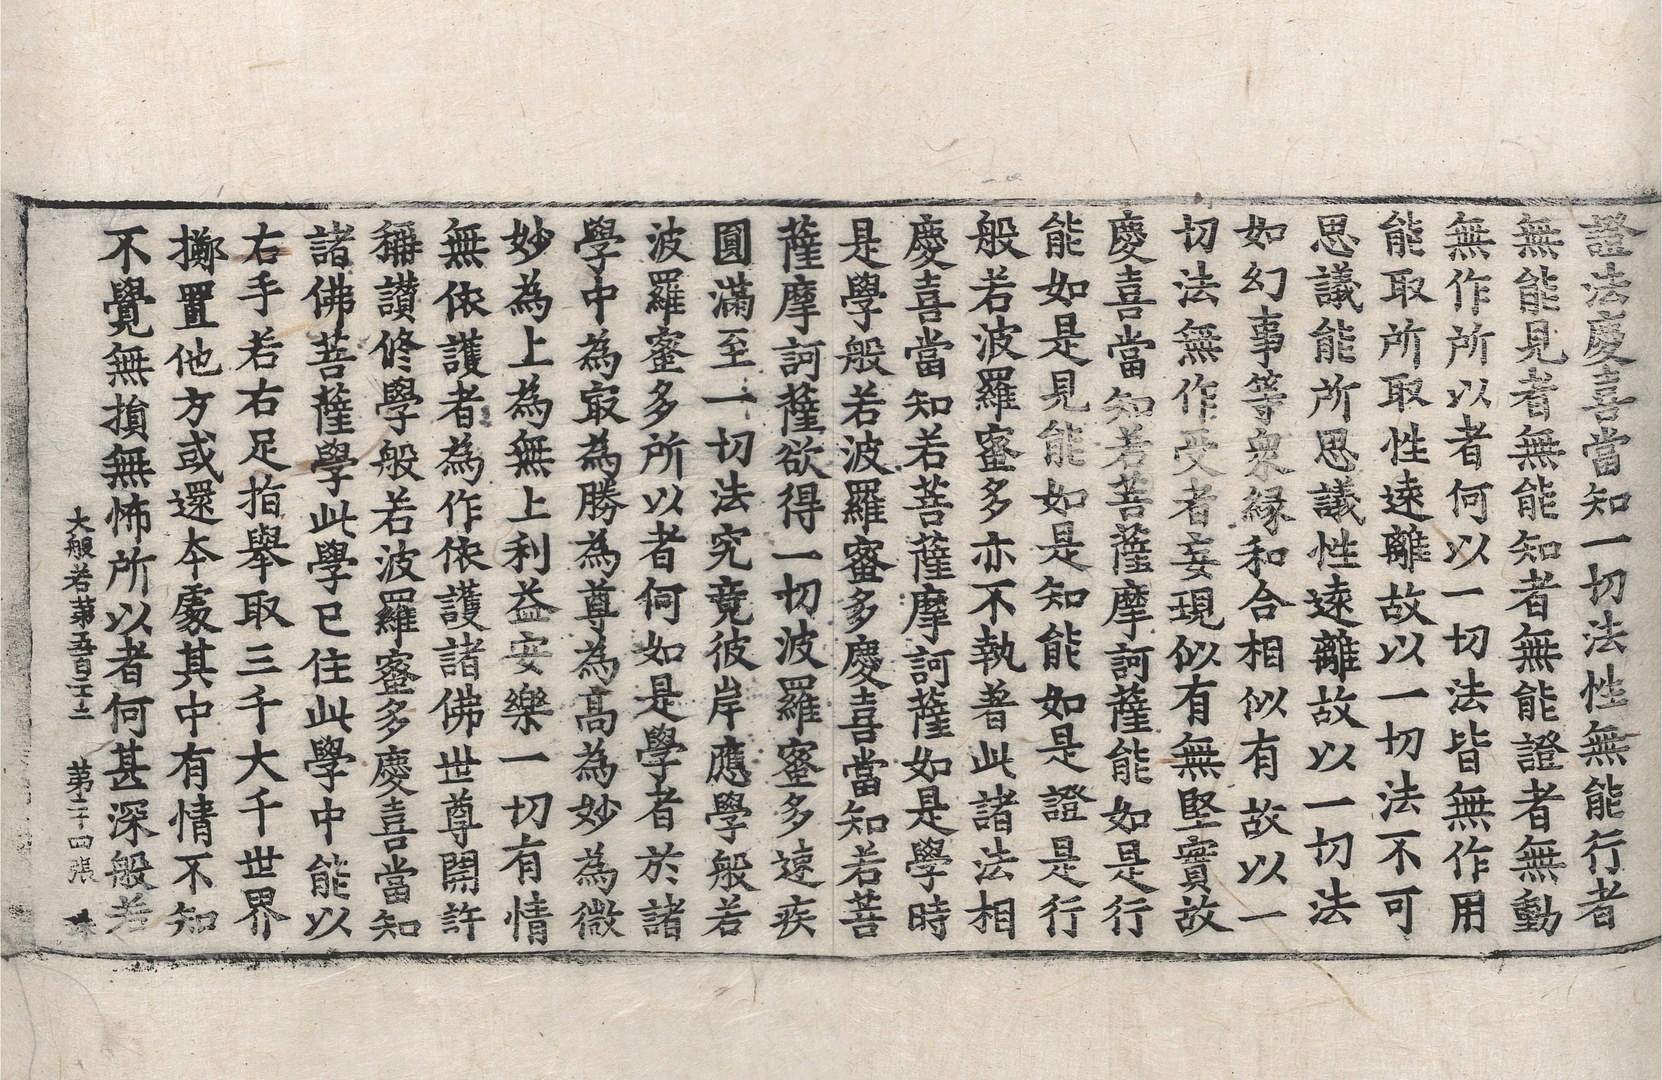 證法慶喜當知一切法性無能行者
無能見者無能知者無能證者無動
無作所以者何以一切法皆無作用
能取所取性遠離故以一切法不可
思議能所思議性遠離故以一切法
如幻事等衆緣和合相似有故以一
切法無作受者妄現似有無堅實故
慶喜當知若菩薩摩訶薩能如是行
能如是見能如是知能如是證是行
般若波羅蜜多亦不執著此諸法相
慶喜當知若菩薩摩訶薩如是學時
是學般若波羅蜜多慶喜當知若菩
薩摩訶薩欲得一切波羅蜜多速疾
圓滿至一切法究竟彼岸應學般若
波羅蜜多所以者何如是學者於諸
學中為㝡為勝為尊為高為妙為微
妙為上為無上利益安樂一切有情
無依護者為作依護諸佛世尊開許
稱讚修學般若波羅蜜多慶喜當知
諸佛菩薩學此學已住此學中能以
右手若右足指舉取三千大千世界
擲置他方或還本處其中有情不知
不覺無損無怖所以者何甚深般若
大般若第五百三十二　第二十四張　珠